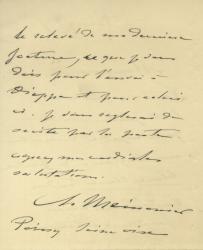 le relevé de ma dernière
facture, ce que je vous
dois pour l'envoi à
Dieppe et pour celui
ci. je vous réglerai de
suite par la poste.
agréez mes cordiales
salutations.
Ch Meissonier
Poissy Seine et Oise